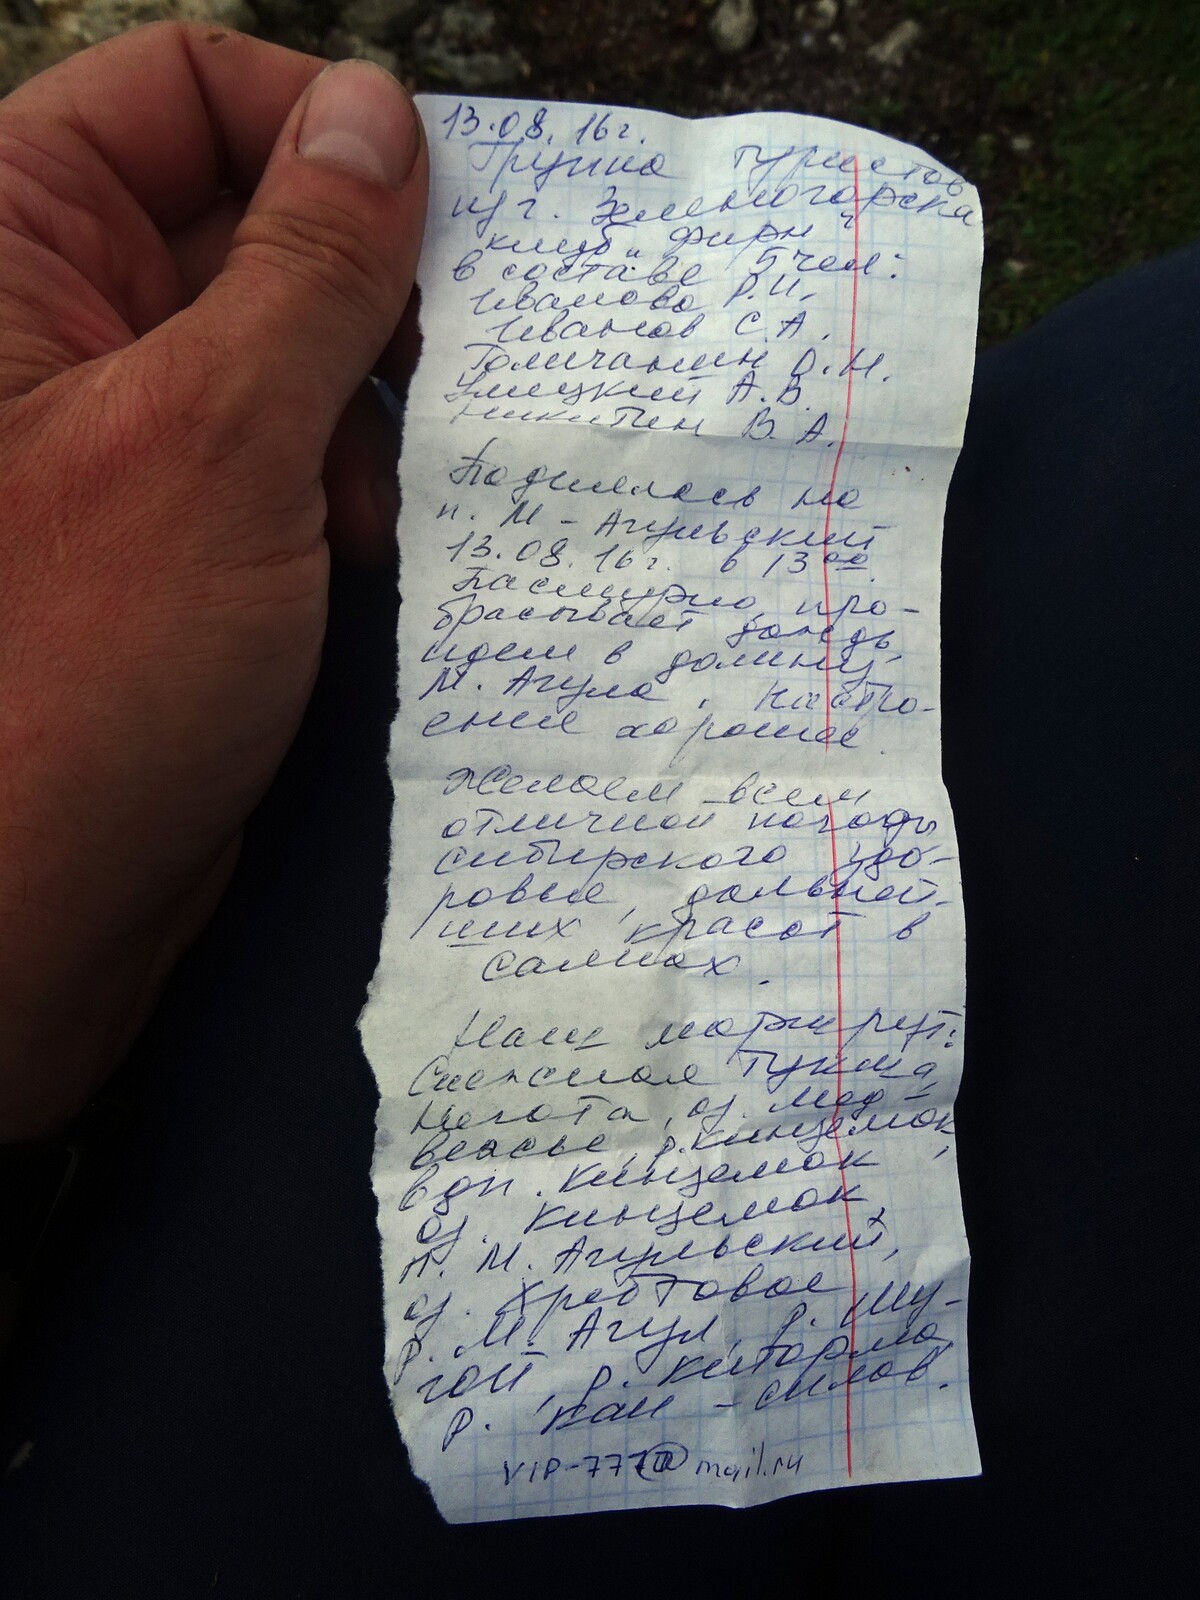 13.08.16г.
Группа туристов
из г. Зеленогорска
клуб "Фирн"
в составе 5 чел:
Иванова Р.И.
Иванов С.А.
Толичанин О.Н.
Улицкий А.В.
Никитин В.А.
Поднялась на
п. М-Агульский
13.08.16г. в 13 00.
Пасмурно, про-
брасывает дождь,
идем в долину
М. Агула, настро-
ение хорошее.
Желаем всем
отличной погоды
сибирского здо-
ровья, дальней-
ших красот в
Саянах.
Наш маршрут:
Снежная Тукша,
Негота, оз. Мед-
вежье, р. Кинзелюк,
вдп. Кинзелюк
оз. Кинзелюк,
п. М. Агульский,
оз. Хребтовое
р. М. Агул, р. Му-
гой, р. Киторма
р. Кан - сплав.
VIP-777@mail.ru